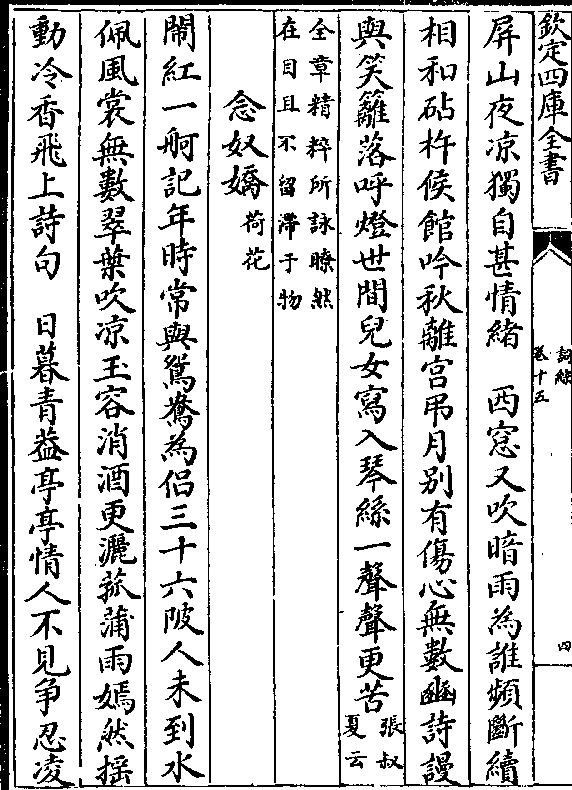 欽定四庫全書
詞綜
卷十五
四
屏山夜凉獨自甚情緒　西窓又吹暗雨為誰頻斷續
相和砧杵候館吟秋離宫弔月别有傷心無數豳詩謾
與笑籬落呼燈世間兒女寫入琴絲一聲聲更苦張叔
夏云
全章精粹所詠瞭然
在目且不留滯于物
念奴嬌荷花
鬧紅一舸記年時常與鴛鴦為侣三十六陂人未到水
佩風裳無數翠葉吹凉玉容消酒更灑菰蒲雨嫣然摇
動冷香飛上詩句　日暮青葢亭亭情人不見争忍凌